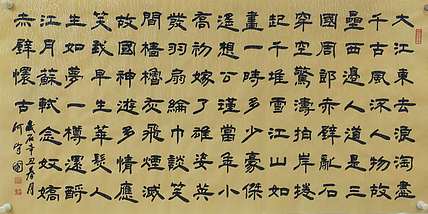 大江東去浪淘盡
千古風流人物故
壘西邊人道是三
國周郎赤壁亂石
穿空驚濤拍岸捲
起千堆雪江山如
畫一時多少豪傑
遙想公瑾當年小
喬初嫁了雄姿英
發羽扇綸巾談笑
間檣櫓灰飛煙滅
故國神遊多情應
笑我早生華髮人
生如夢一樽還酹
江月蘇軾念奴嬌
赤壁懷古
辛丑春月